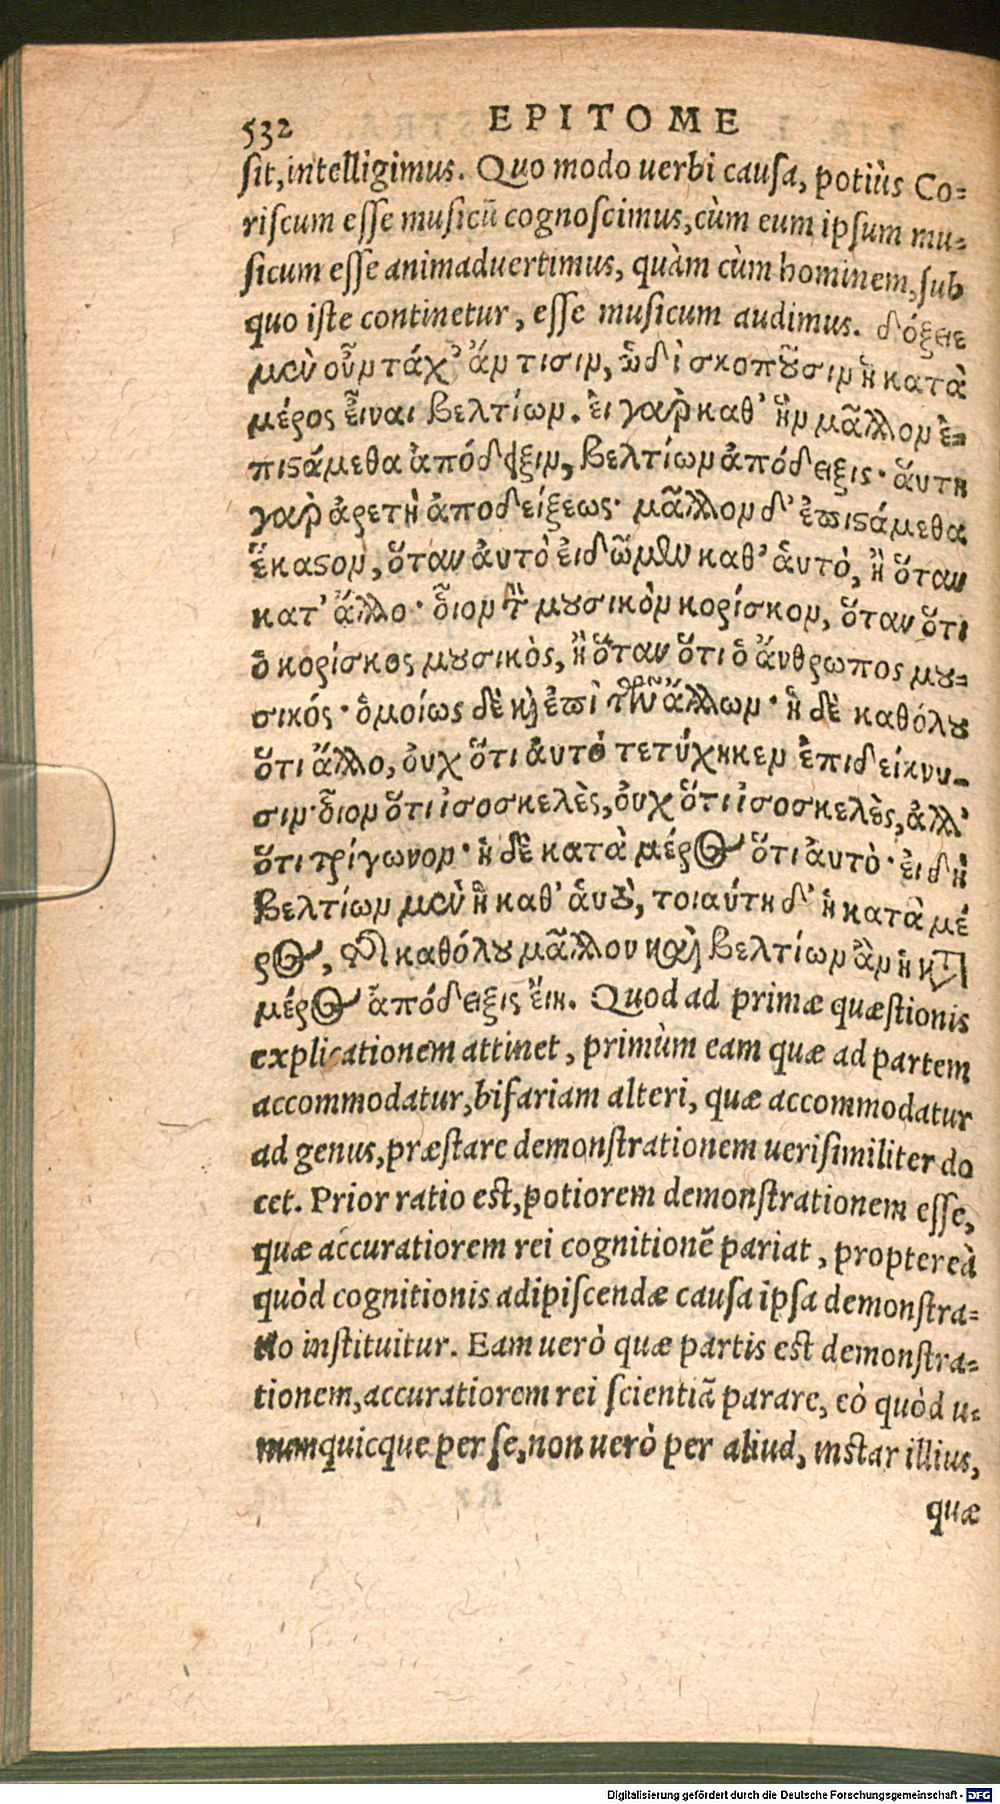 532 EPITOME
sit, intelligimus. Quo modo uerbi causa, potiùs Co-
riscum esse musicũ cognoscimus, cùm eum ipsum mu-
sicum esse animaduertimus, quàm cùm hominem, sub
quo iste continetur, esse musicum audimus. δόξειε
μὲν οὖν τάχ' ἄν τισιν, ὡδὶ σκοποῦσιν ἡ κατὰ
μέρος εἶναι βελτίων. εἰ γὰρ καθ' ἣν μᾶλλον ἐ-
πιστάμεθα ἀπόδειξιν, βελτίων ἀπόδειξις· αὕτη
γὰρ ἀρετὴ ἀποδείξεως· μᾶλλον δ' ἐπιστάμεθα
ἕκαστον, ὅταν αὐτὸ εἰδῶμεν καθ' ἁυτὸ, ἢ ὅταν
κατ' ἄλλο· οἷον τὸν μουσικὸν κορίσκον, ὅταν ὅτι
ὁ κορίσκος μουσικὸς, ἢ ὅταν ὅτι ὁ ἄνθρωπος μου-
σικός· ὁμοίως δὲ καὶ ἐπὶ τῶν ἄλλων· ἡ δὲ καθόλου
ὅτι ἄλλο, οὐχ ὅτι αὐτὸ τετύχηκεν ἐπιδείκνυ-
σιν· οἷον ὅτι ἰσοσκελὲς, οὐχ ὅτι ἰσοσκελὲς, ἀλλ'
ὅτι τρίγωνον· ἡ δὲ κατὰ μέρος ὅτι αὐτὸ· εἰ δὴ
βελτίων μὲν ἡ καθ' ἁυτὸ, τοιαύτη δ' ἡ κατὰ μέ
ρος, τῆς καθόλου μᾶλλον καὶ βελτίων ἂν ἡ κατὰ
μέρος ἀπόδειξις εἴη. Quod ad primæ quæstionis
explicationem attinet, primùm eam quæ ad partem
accommodatur, bifariam alteri, quæ accommodatur
ad genus, præstare demonstrationem uerisimiliter do
cet. Prior ratio est, potiorem demonstrationem esse,
quæ accuratiorem rei cognitionẽ pariat, proptereà
quòd cognitionis adipiscendæ causa ipsa demonstra-
tio instituitur. Eam uerò quæ partis est demonstra-
tionem, accuratiorem rei scientiã parare, eò quòd u-
numquicque per se, non uerò per aliud, instar illius,
quæ
Digitalisierung gefördert durch die Deutsche Forschungsgemeinschaft - DFG